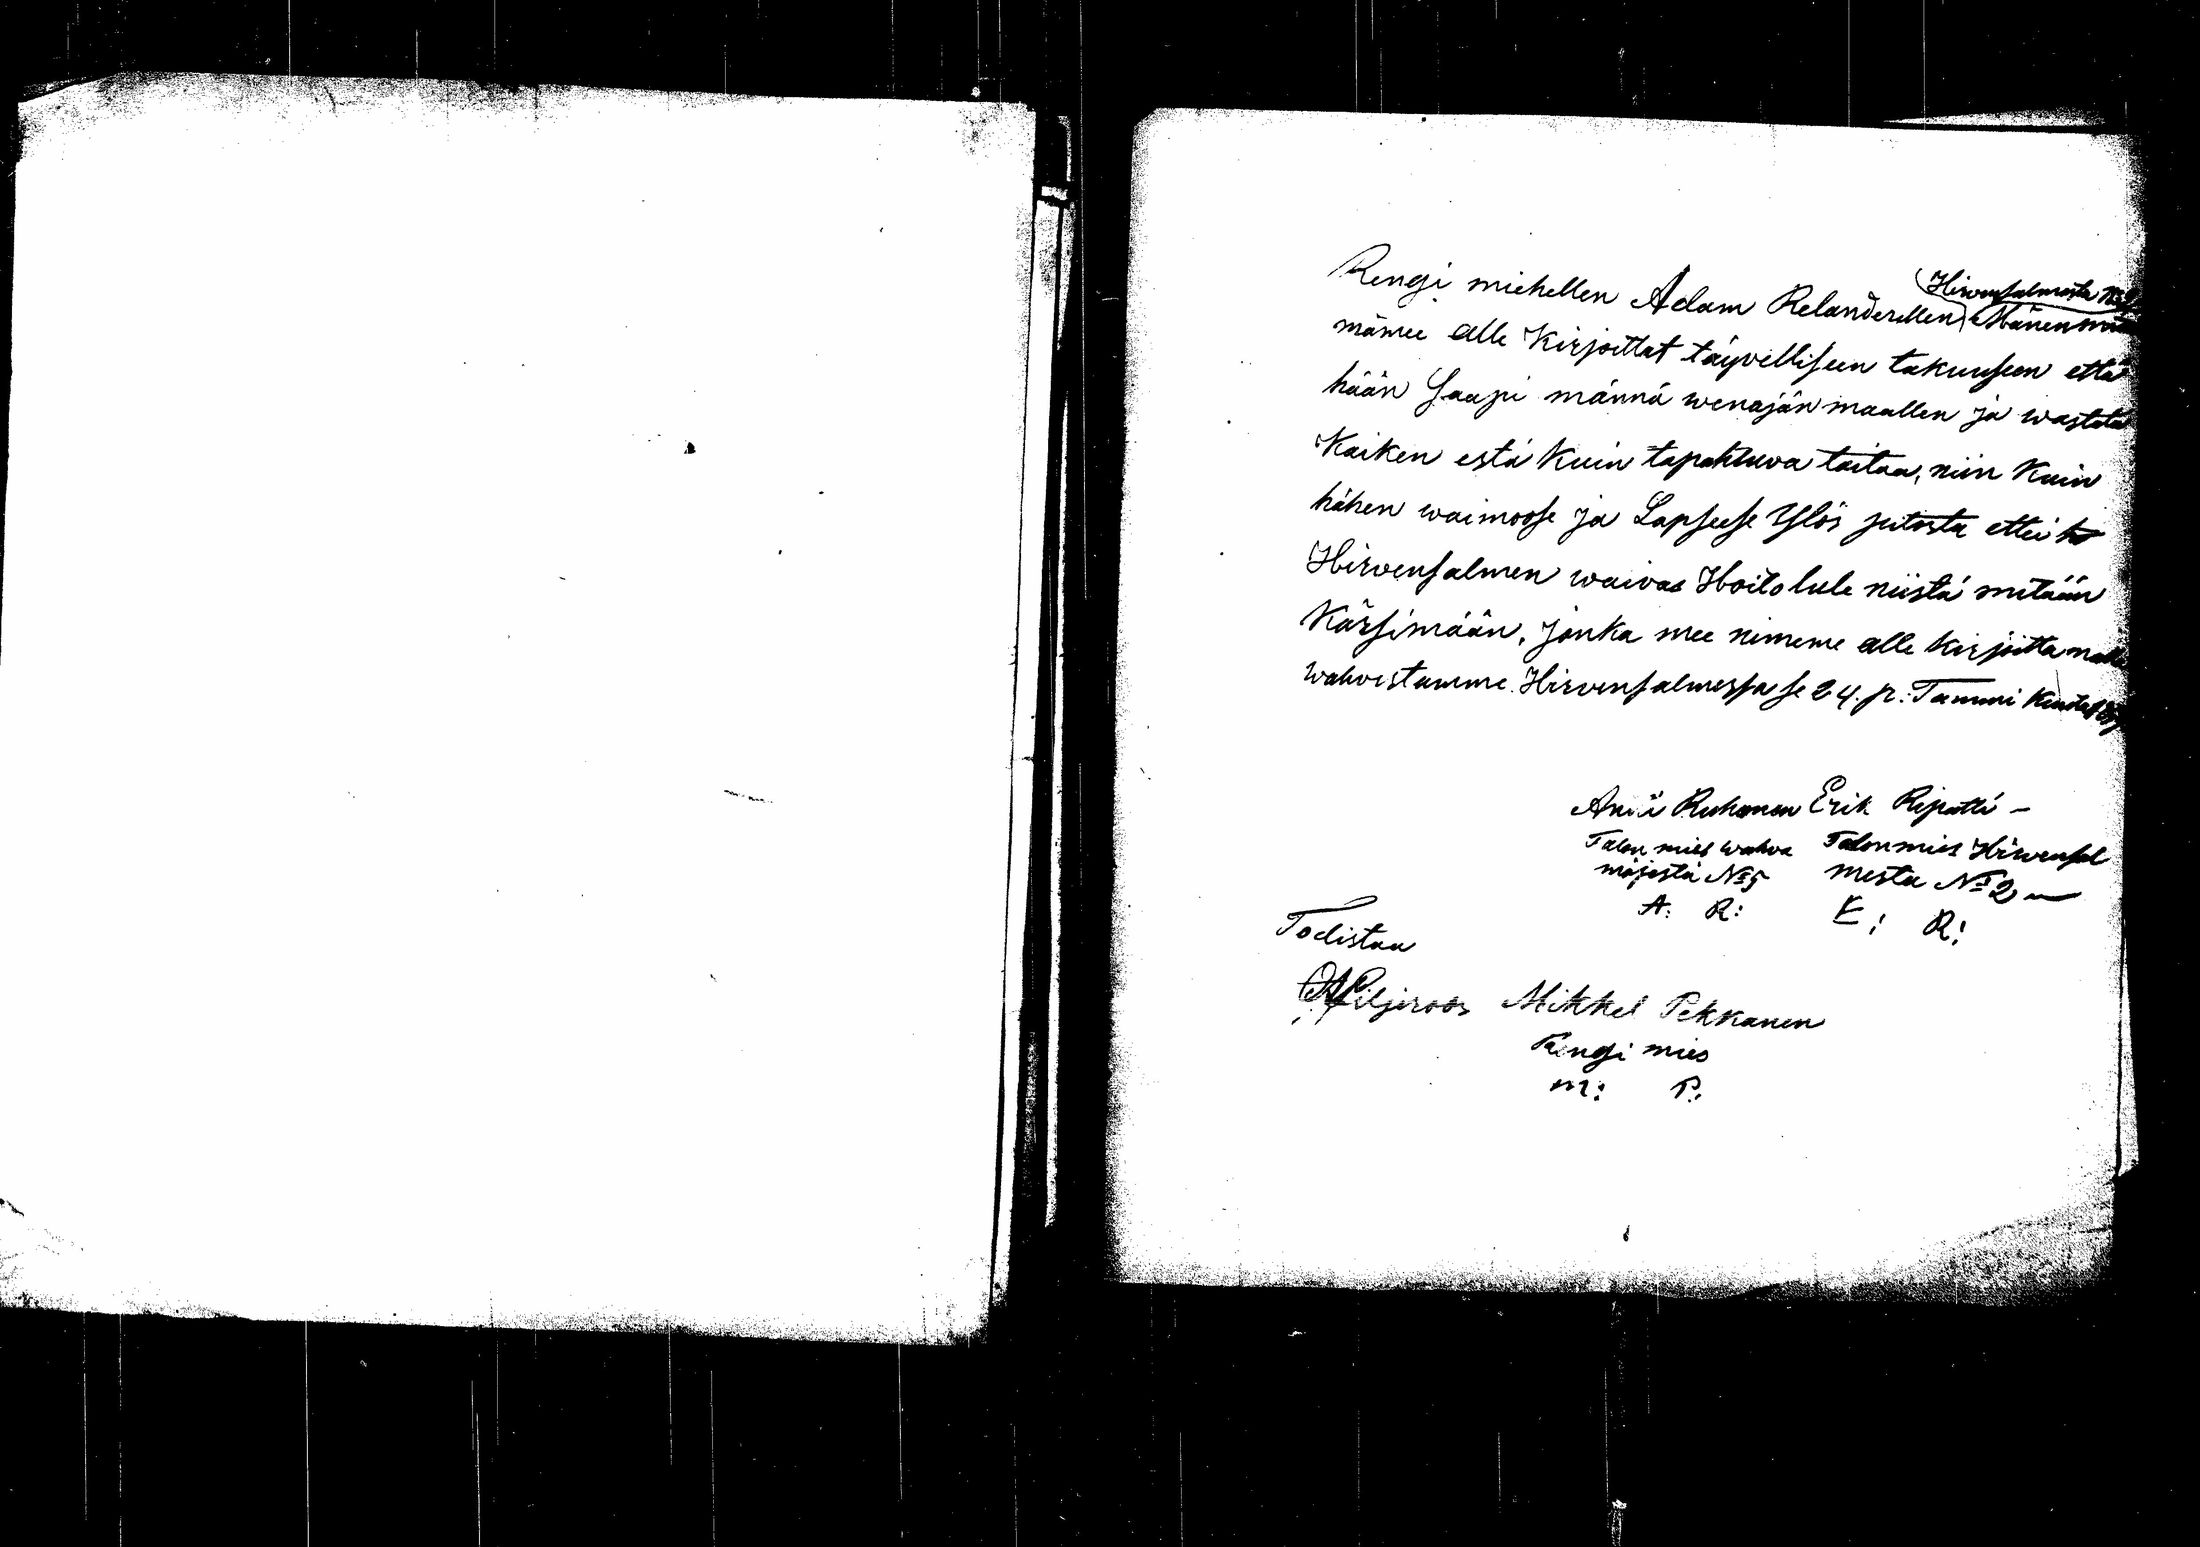 Hirvensalmesta
Rengi miehellen Adam Relanderillen Mänen
mämee alle Kirjoittat täyvelliseen takuuseen että
hään Saapi männä wenäjän maallen ja wastata
Kaiken estä kuin tapahtuva taitaa, niin kuin
hähen waimoose ja Lapseese Ylös pitosta ettei
Hirvensalmen waivas Hoito lule niistä mitään
Kärsimään, jonka mee nimeme alle kirjoitta
wahvistamme. Hirvensalmessa se 24. p: Tammi
Antti Ruhanen Erik Ripatti –
Talon mies wahva Talonmies Hirvensal
mäjestä No 5 mesta No 2
A: R: E: R:
Todistaa
Liljeroos Mikkel Pekkanen
Rengi mies
M: P: